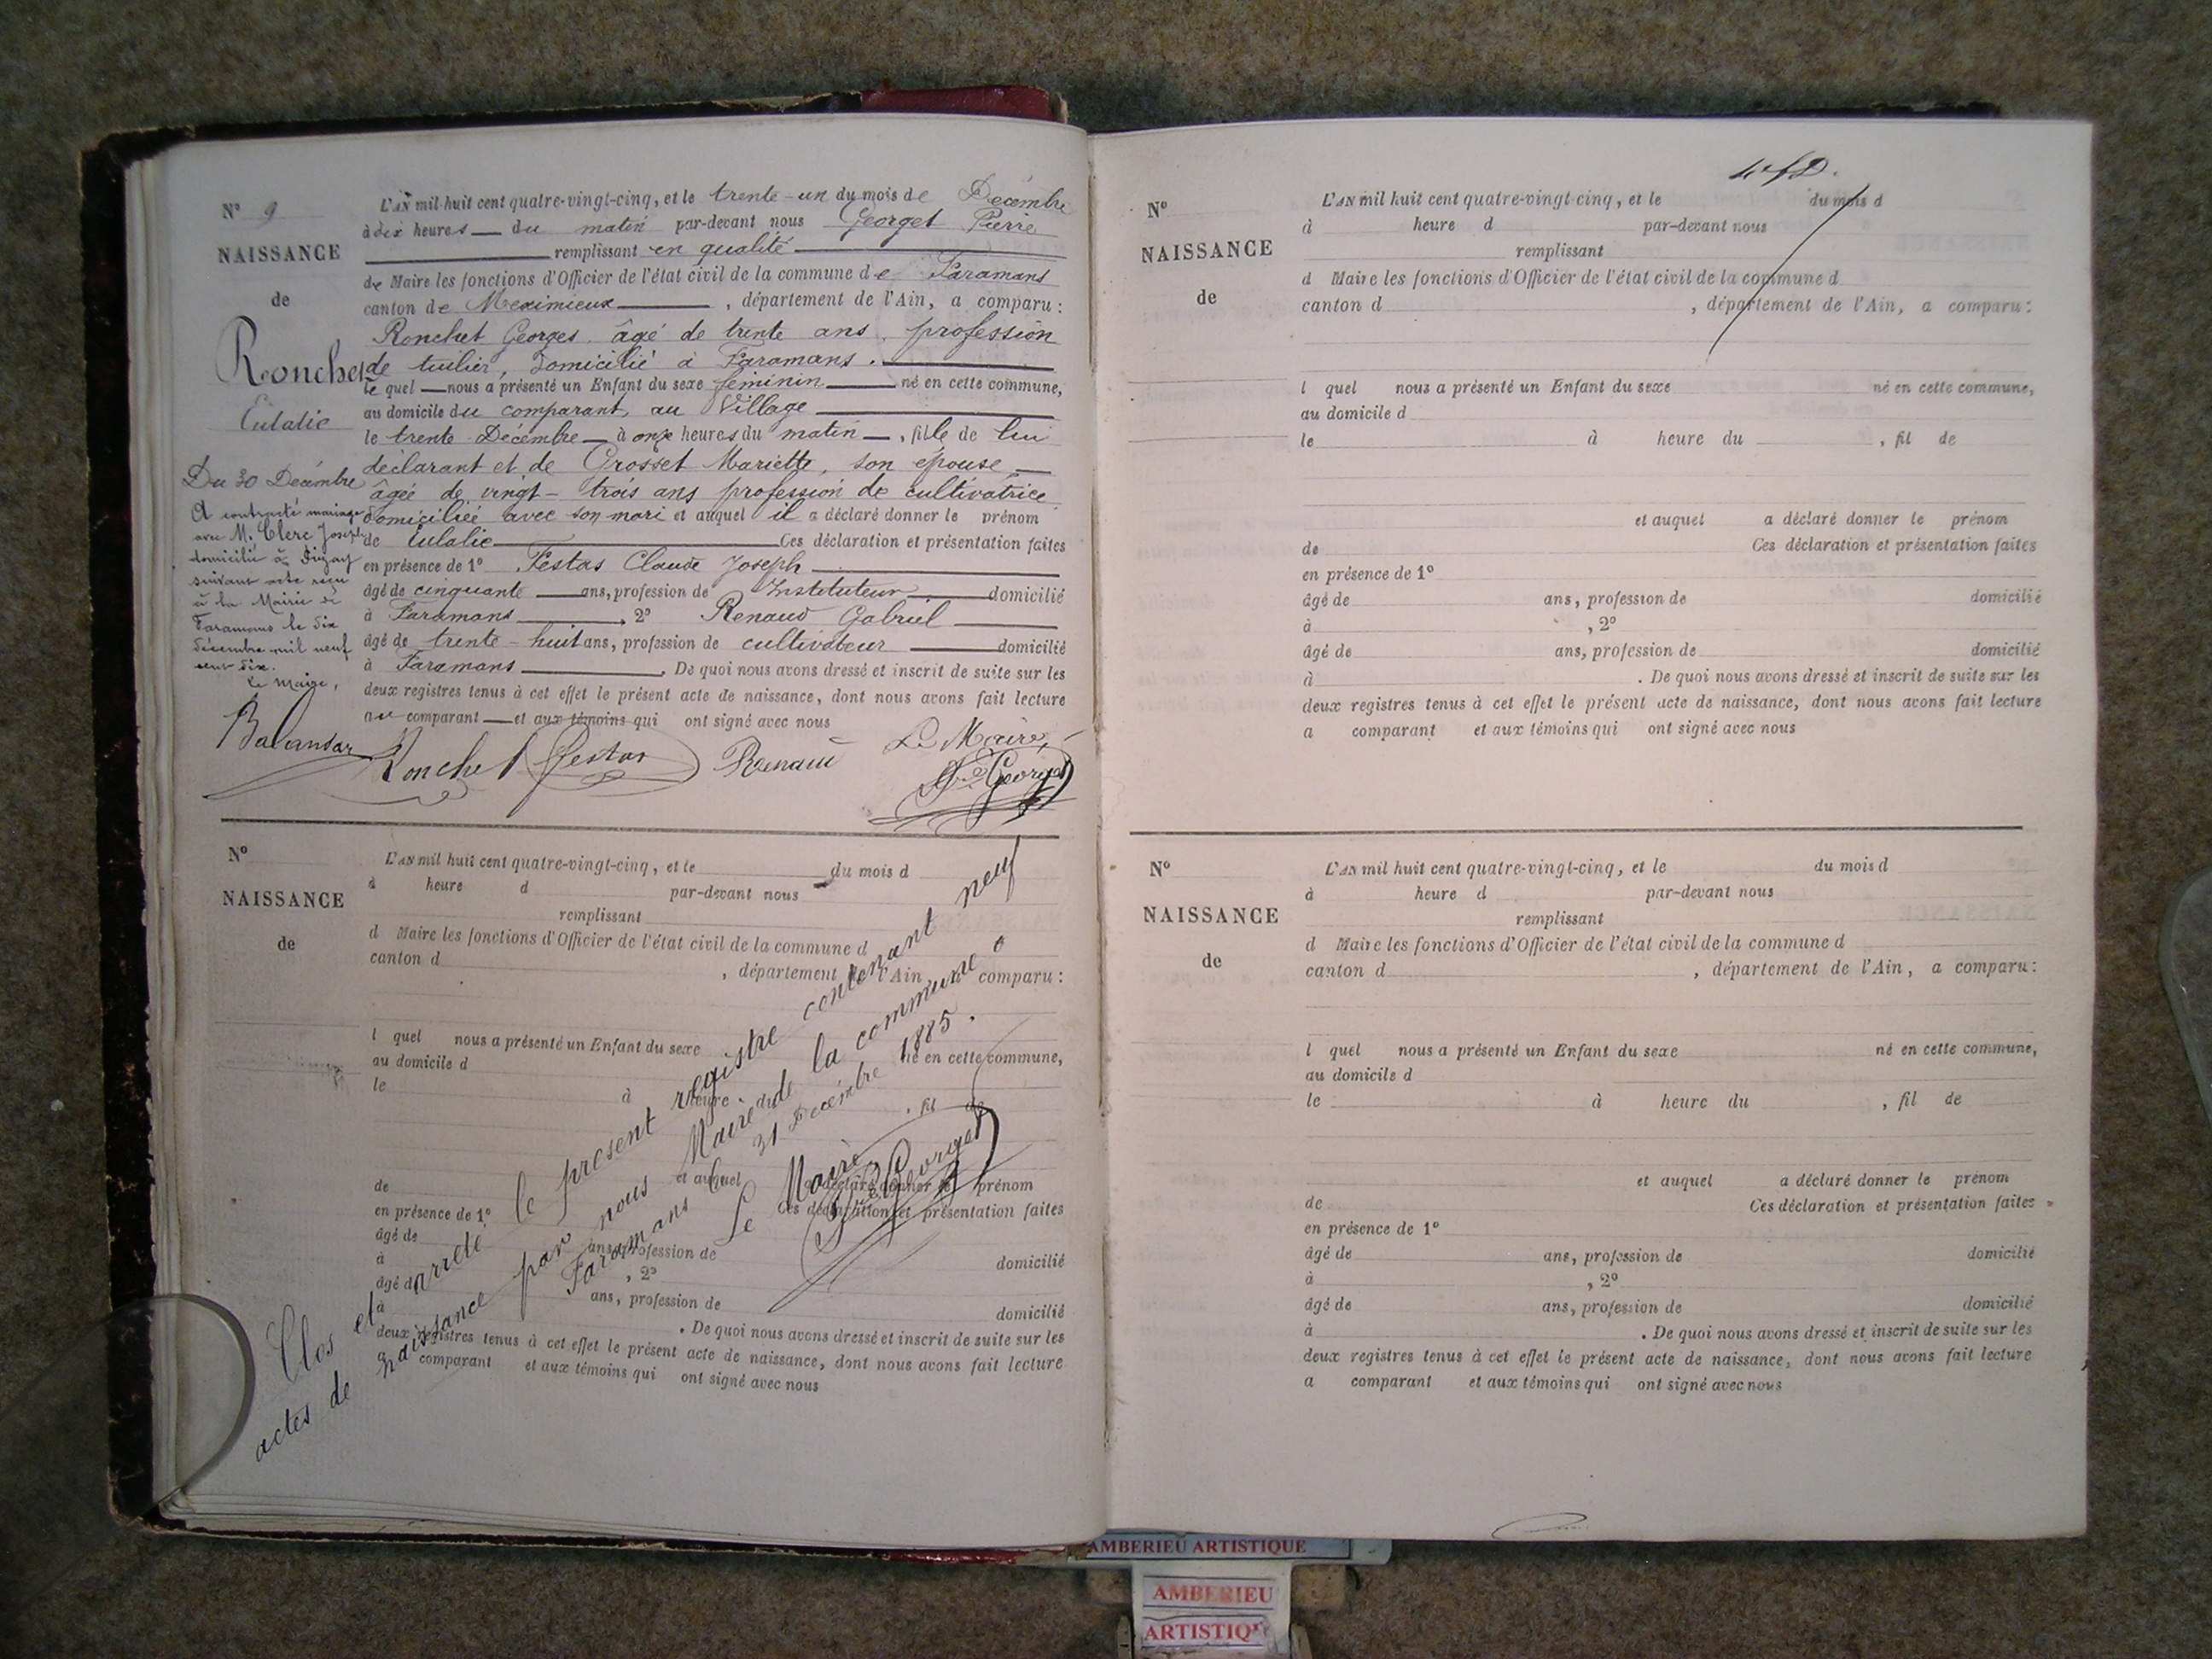 N° 9
NAISSANCE
de
Ronchet
Eulalie
Du 30 Décembre
A contracté mariage
avec M. Clerc Joseph
domicilié à
suivant acte reçu
à la Mairie de
Faramans le dix
décembre mil neuf
cent dix.
Le Maire,
L'AN mil huit cent quatre-vingt-cinq, et le trente-un du mois de Décembre
à dix heures du matin par-devant nous Georget Pierre
remplissant en qualité
de Maire les fonctions d'Officier de l'état civil de la commune de Faramans
canton de Meximieux, département de l'Ain, a comparu:
Ronchet Georges. âgé de trente ans, profession
de tuilier, domicilié à Faramans.
Le quel nous a présenté un Enfant du sexe féminin né en cette commune,
au domicile du comparant, au Village
le trente Décembre à onze heures du matin, fille de lui
déclarant et de Grosset Mariette, son épouse,
âgée de vingt-trois ans profession de cultivatrice
domiciliée avec son mari et auquel il a déclaré donner le prénom
de Eulalie Ces déclaration et présentation faites
en présence de 1° Festas Claude Joseph
âgé de cinquante ans, profession de Instituteur domicilié
à Faramans, 2° Renaud Gabriel
âgé de trente-huit ans, profession de cultivateur domicilié
à Faramans. De quoi nous avons dressé et inscrit de suite sur les
deux registres tenus à cet effet le présent acte de naissance, dont nous avons fait lecture
au comparant et aux témoins qui ont signé avec nous
Ronchet Festas Renaud Le Maire,
Georget
N°
NAISSANCE
de
L'AN mil huit cent quatre-vingt-cinq, et le du mois d
à heure d par-devant nous
remplissant
d Maire les fonctions d'Officier de l'état civil de la commune d
canton d , département de l'Ain, a comparu:
l quel nous a présenté un Enfant du sexe né en cette commune,
au domicile d
le à heure du , fil de
et auquel a déclaré donner le prénom
de Ces déclaration et présentation faites
en présence de 1°
âgé de ans, profession de domicilié
à , 2°
âgé de ans, profession de domicilié
à . De quoi nous avons dressé et inscrit de suite sur les
deux registres tenus à cet effet le présent acte de naissance, dont nous avons fait lecture
a comparant et aux témoins qui ont signé avec nous
Clos et arrêté le présent registre contenant neuf
actes de naissance par nous Maire de la commune d
Faramans le 31 Décembre 1885.
Le Maire
Georget
N°
NAISSANCE
de
L'AN mil huit cent quatre-vingt-cinq, et le du mois d
à heure d par-devant nous
remplissant
d Maire les fonctions d'Officier de l'état civil de la commune d
canton d , département de l'Ain, a comparu:
l quel nous a présenté un Enfant du sexe né en cette commune,
au domicile d
le à heure du , fil de
et auquel a déclaré donner le prénom
de Ces déclaration et présentation faites
en présence de 1°
âgé de ans, profession de domicilié
à , 2°
âgé de ans, profession de domicilié
à . De quoi nous avons dressé et inscrit de suite sur les
deux registres tenus à cet effet le présent acte de naissance, dont nous avons fait lecture
a comparant et aux témoins qui ont signé avec nous
N°
NAISSANCE
de
L'AN mil huit cent quatre-vingt-cinq, et le du mois d
à heure d par-devant nous
remplissant
d Maire les fonctions d'Officier de l'état civil de la commune d
canton d , département de l'Ain, a comparu:
l quel nous a présenté un Enfant du sexe né en cette commune,
au domicile d
le à heure du , fil de
et auquel a déclaré donner le prénom
de Ces déclaration et présentation faites
en présence de 1°
âgé de ans, profession de domicilié
à , 2°
âgé de ans, profession de domicilié
à . De quoi nous avons dressé et inscrit de suite sur les
deux registres tenus à cet effet le présent acte de naissance, dont nous avons fait lecture
a comparant et aux témoins qui ont signé avec nous
AMBERIEU ARTISTIQUE
AMBERIEU
ARTISTIQ